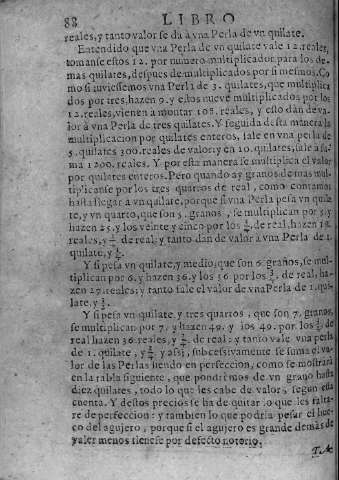 88 LIBRO
reales, y tanto valor se dà a vna Perla de vn quilate.
Entendido que vna Perla de vn quilate vale 12. reales,
tomanse estos 12. por numero multiplicador para los de-
mas quilates, despues de multiplicados por si mesmos. Co-
mo si tuviessemos vna Perla de 3. quilates, que multiplica
dos por tres, hazen 9. y estos nueve multiplicados por los
12. reales, vienen à montar 108. reales, y esto dàn de va-
lor à vna Perla de tres quilates. Y seguida desta manera la
multiplicacion por quilates enteros, sale en vna perla de
5. quilates 300. reales de valor: y en 10. quilates, sale à su-
ma 1200. reales. Y por esta manera se multiplica el valor
por quilates enteros. Pero quando ay granos de mas mul-
tiplicanse por los tres quartos de real, como contamos
hasta llegar à vn quilate, porque si vna Perla pesa vn quila-
te, y vn quarto, que son 5. granos, se multiplican por 5. y
hazen 25. y los veinte y cinco por los ¾. de real, hazen 18.
reales, y ¾ de real; y tanto dàn de valor à vna Perla de 1.
quilate, y ¼.
Y si pesa vn quilate, y medio, que son 6. granos, se mul-
tiplican por 6. y hazen 36. y los 36 por los ¾. de real, ha-
zen 27. reales: y tanto sale el valor de vna Perla de 1. qui-
late, y ½.
Y si pesa vn quilate, y tres quartos, que son 7. granos,
se multiplican por 7. y hazen 49. y los 49. por los ¾ de
real hazen 36. reales, y ¾. de real: y tanto vale vna perla
de 1. quilate, y ¾. y assi, subcesivamente se suma el va-
lor de las Perlas siendo en perfeccion, como se mostrarà
en la tabla siguiente, que pondrèmos de vn grano hasta
diez quilates, todo lo que les cabe de valor, segun esta
cuenta. Y destos precios se ha de quitar lo que les falta-
re de perfeccion: y tambien lo que podria pesar el hue-
co del agujero, porque si el agujero es grande demàs de
valer menos tienese por defecto notorio.